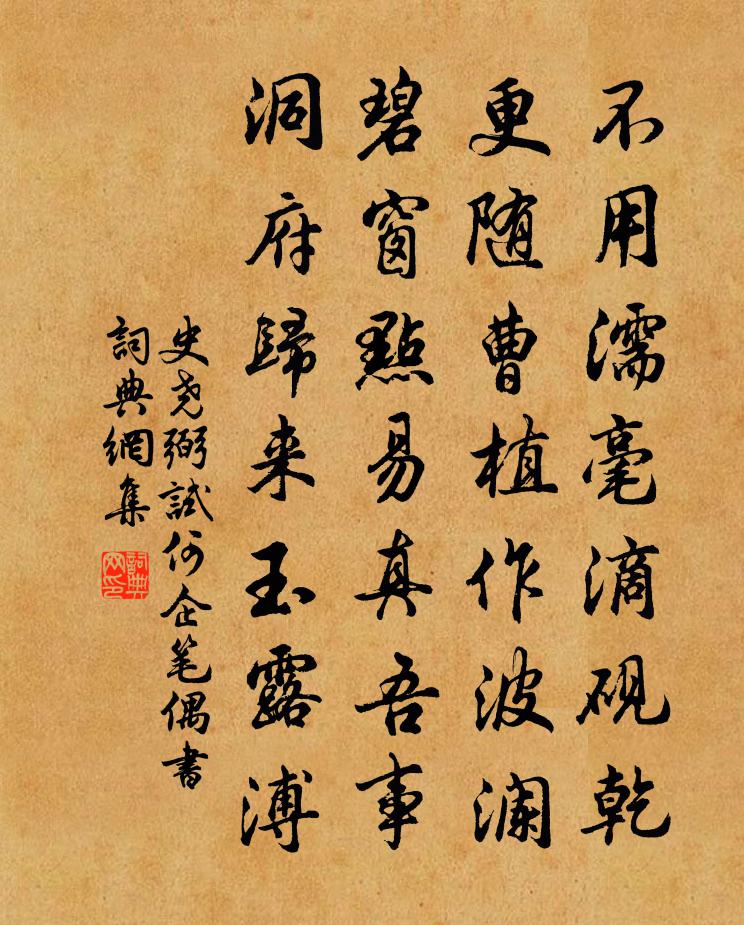 不用濡毫滴砚乾
更随曹植作波澜
碧窗點易真吾事
洞府歸来玉露漙
史尧弼試何企笔偶書
詞典網集
詞典网印